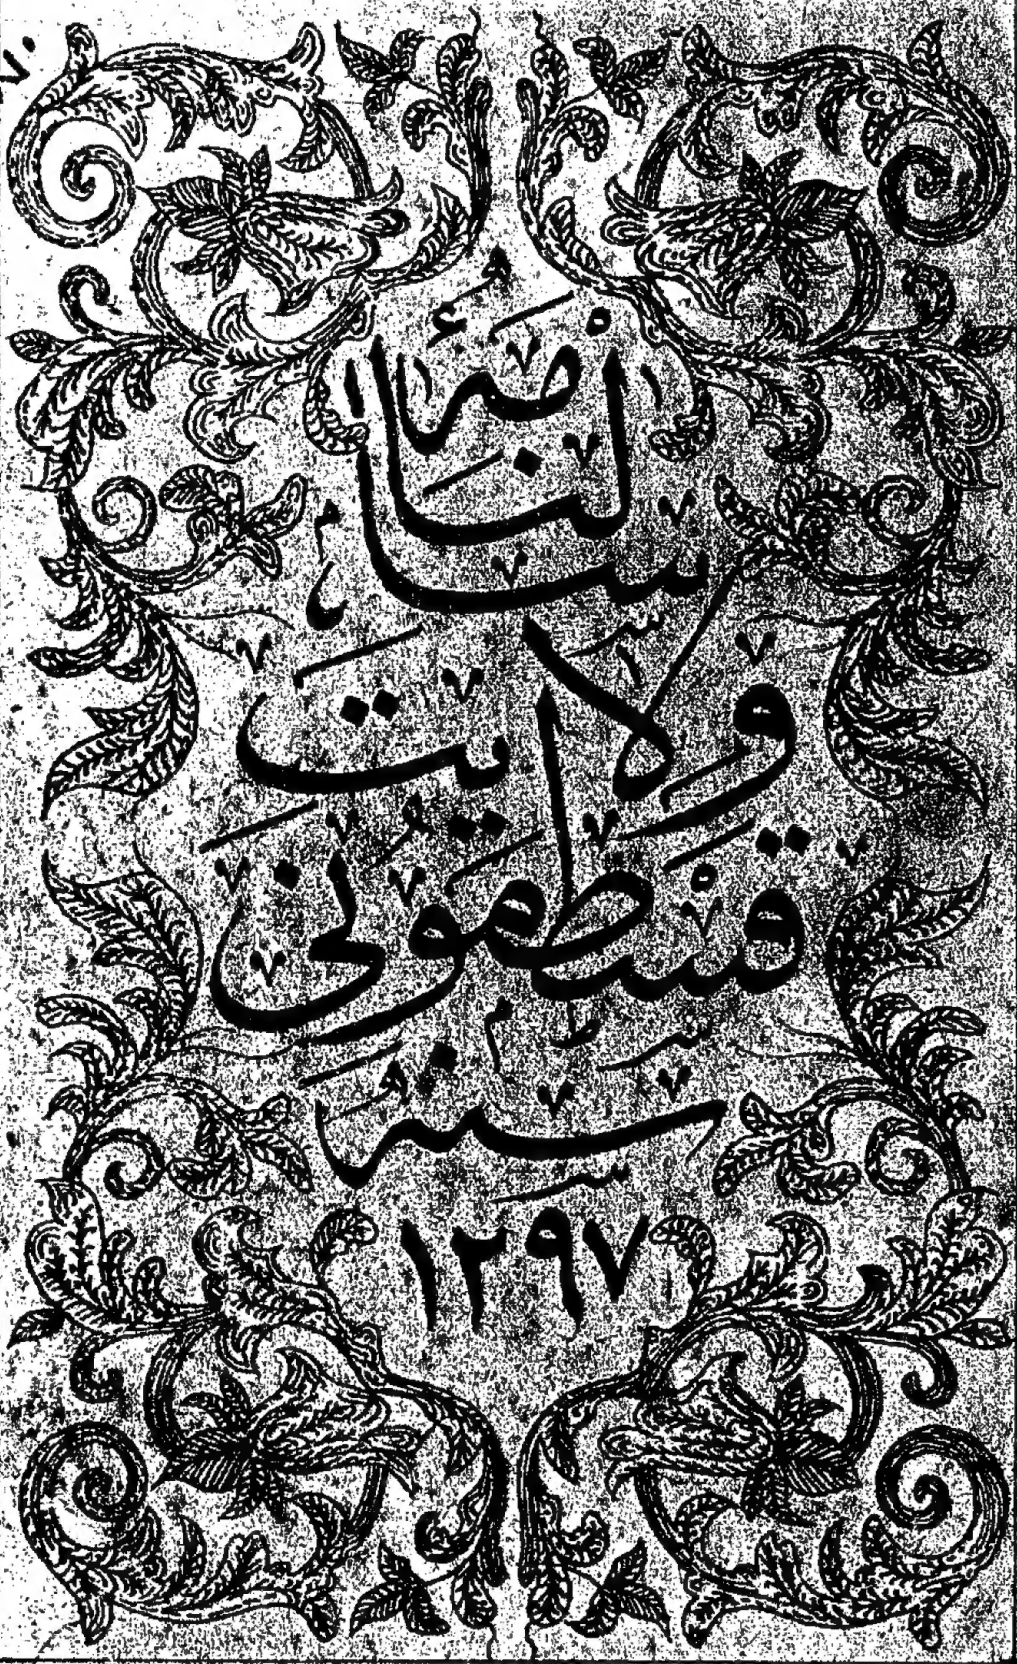 سالنامهٔ
ولايت
قسطمونى
سنه
١٢٩٧